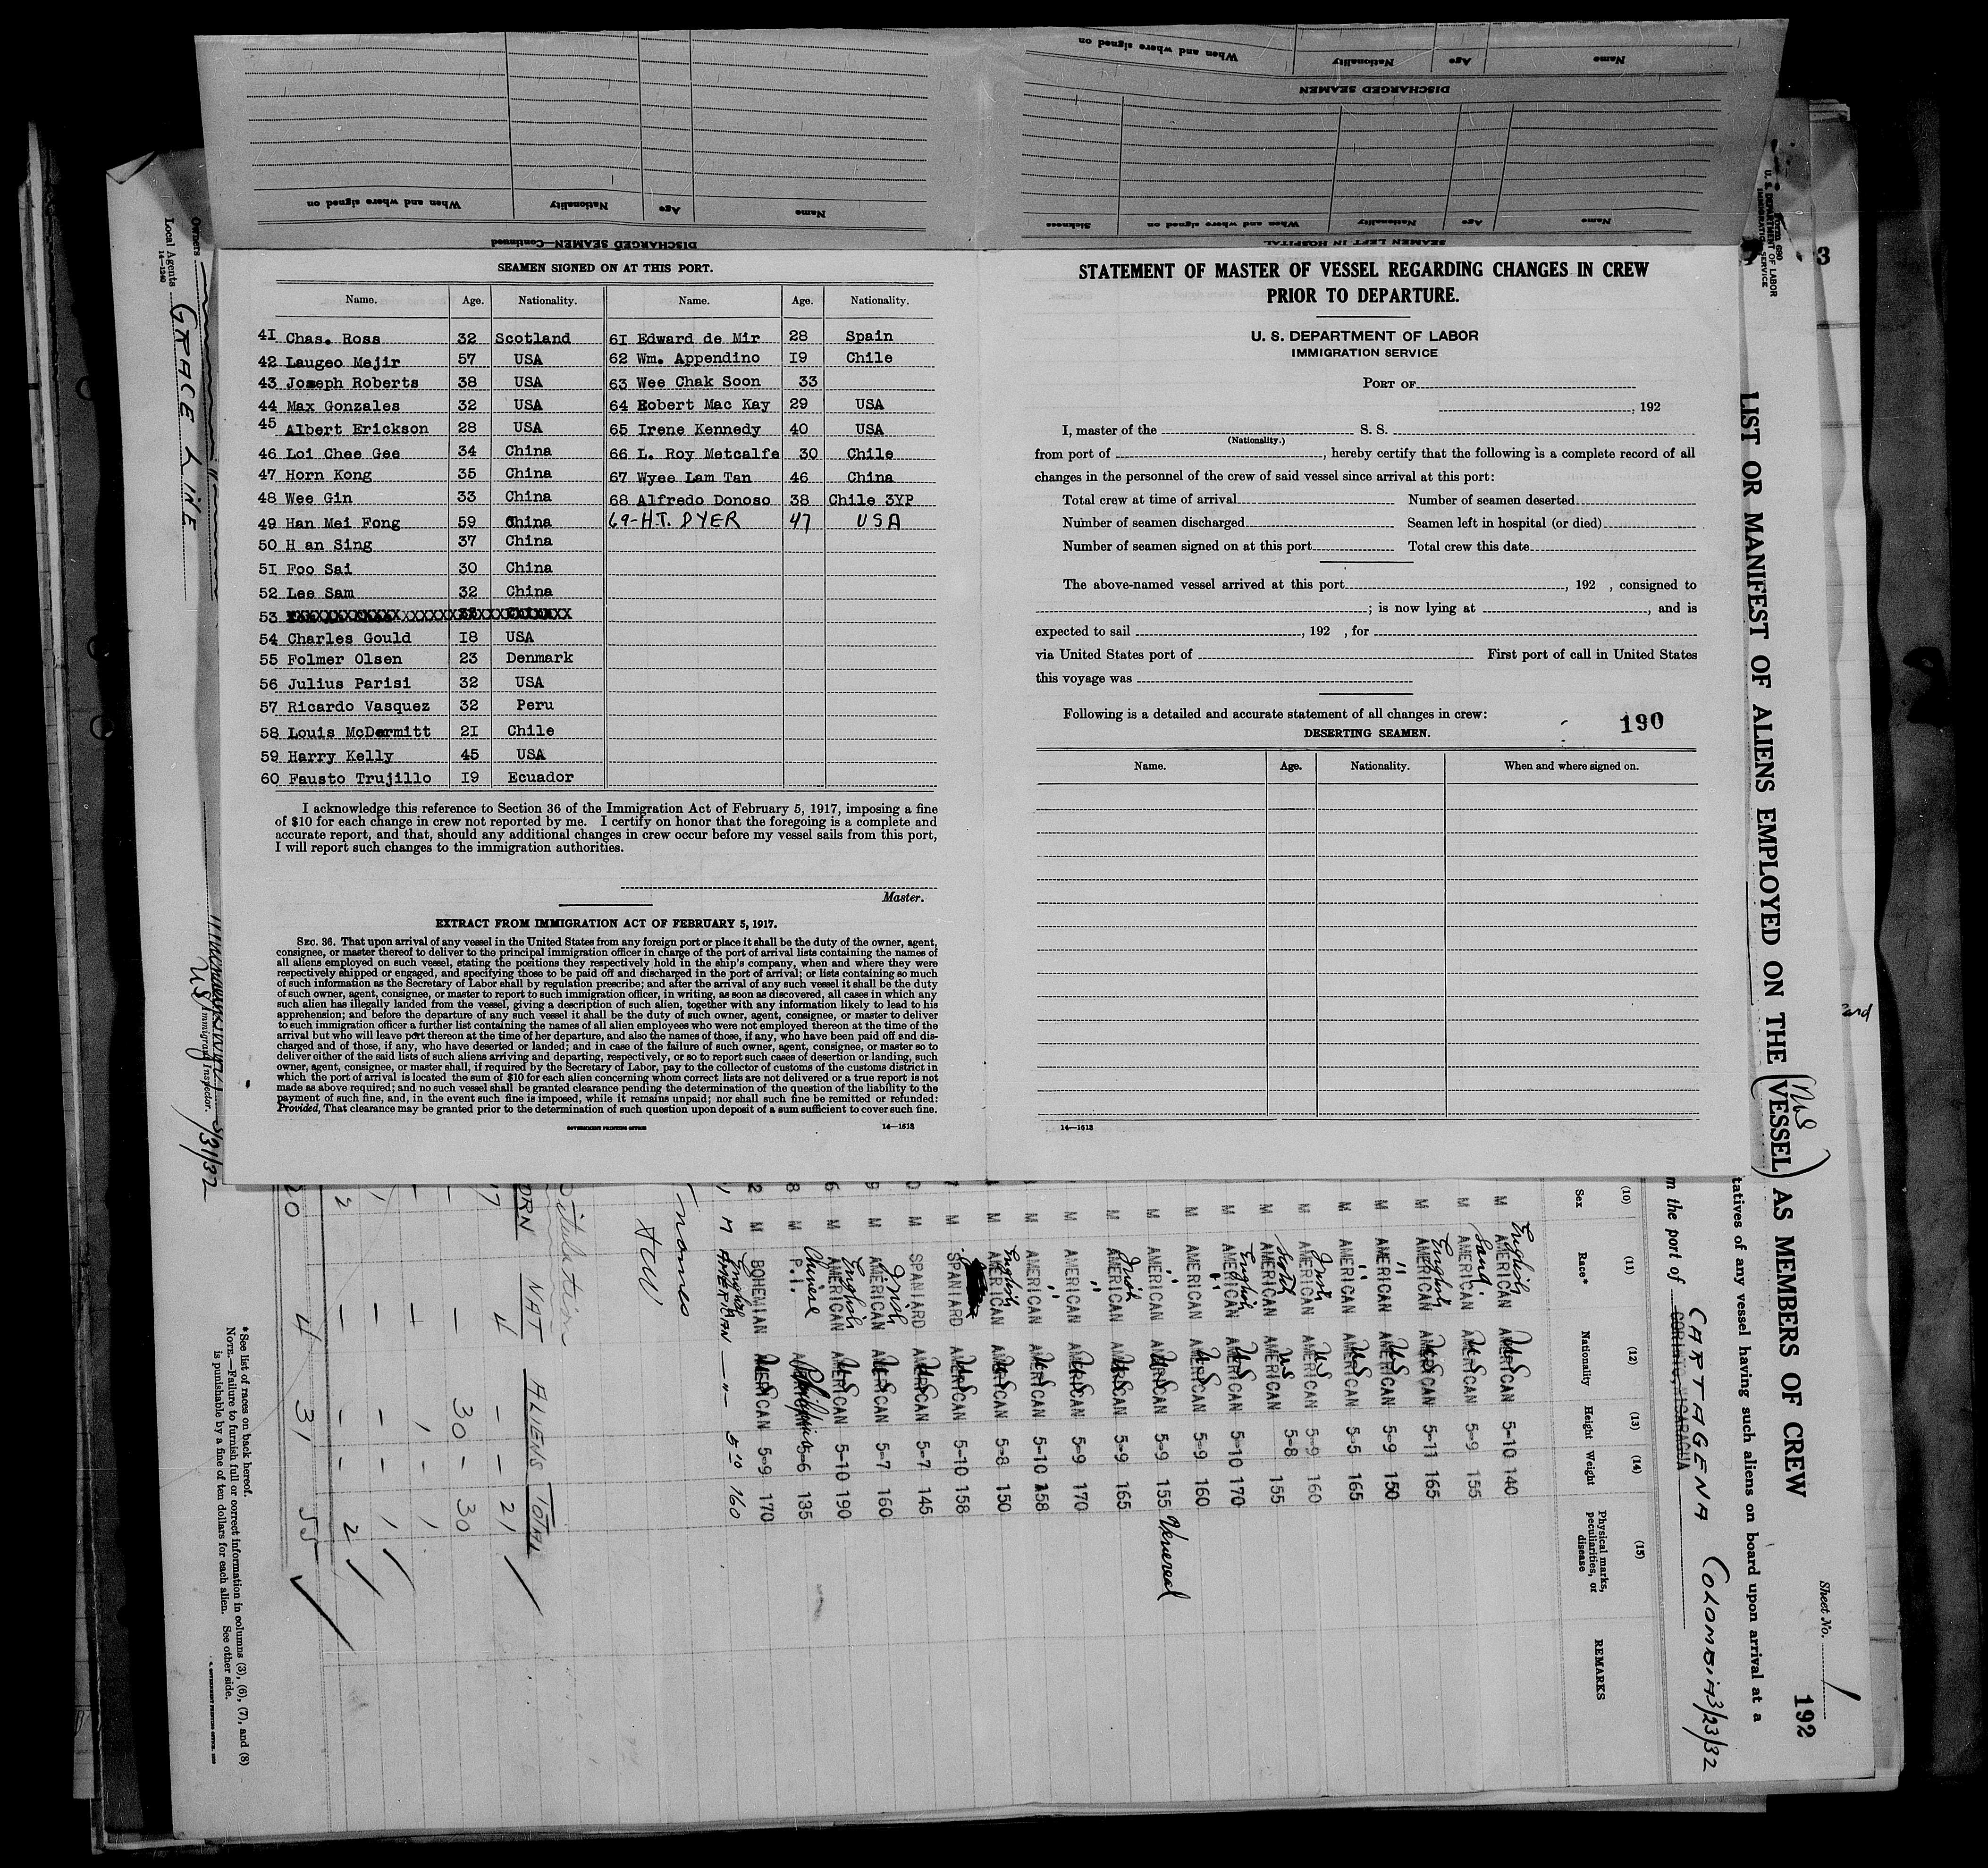 DISCHARGED SEAMEN—Continued
Name When and where signed on Age Nationality
SEAMEN LEFT IN HOSPITAL
Name Age Nationality When and where signed on Sickness
DISCHARGED SEAMEN
Name Age Nationality When and where signed on
SEAMEN SIGNED ON AT THIS PORT.
Name. Age. Nationality. Name. Age. Nationality.
41 Chas. Ross 32 Scotland 61 Edward de Mir 28 Spain
42 Laugeo Mejir 57 USA 62 Wm. Appendino 19 Chile
43 Joseph Roberts 38 USA 63 Wee Chak Soon 33
44 Max Gonzales 32 USA 64 Robert Mac Kay 29 USA
45 Albert Erickson 28 USA 65 Irene Kennedy 40 USA
46 Loi Chee Gee 34 China 66 L. Roy Metcalfe 30 Chile
47 Horn Kong 35 China 67 Wyee Lam Tan 46 China
48 Wee Gin 33 China 68 Alfredo Donoso 38 Chile 3YP
49 Han Mei Fong 59 China 69-H.T. DYER 47 USA
50 H an Sing 37 China
51 Foo Sai 30 China
52 Lee Sam 32 China
53
54 Charles Gould 18 USA
55 Folmer Olsen 23 Denmark
56 Julius Parisi 32 USA
57 Ricardo Vasquez 32 Peru
58 Louis McDermitt 21 Chile
59 Harry Kelly 45 USA
60 Fausto Trujillo 19 Ecuador
I acknowledge this reference to Section 36 of the Immigration Act of February 5, 1917, imposing a fine
of $10 for each change in crew not reported by me. I certify on honor that the foregoing is a complete and
accurate report, and that, should any additional changes in crew occur before my vessel sails from this port,
I will report such changes to the immigration authorities.
Master.
EXTRACT FROM IMMIGRATION ACT OF FEBRUARY 5, 1917.
SEC. 36. That upon arrival of any vessel in the United States from any foreign port or place it shall be the duty of the owner, agent,
consignee, or master thereof to deliver to the principal immigration officer in charge of the port of arrival lists containing the names of
all aliens employed on such vessel, stating the positions they respectively hold in the ship's company, when and where they were
respectively shipped or engaged, and specifying those to be paid off and discharged in the port of arrival; or lists containing so much
of such information as the Secretary of Labor shall by regulation prescribe; and after the arrival of any such vessel it shall be the duty
of such owner, agent, consignee, or master to report to such immigration officer, in writing, as soon as discovered, all cases in which any
such alien has illegally landed from the vessel, giving a description of such alien, together with any information likely to lead to his
apprehension; and before the departure of any such vessel it shall be the duty of such owner, agent, consignee, or master to deliver
to such immigration officer a further list containing the names of all alien employees who were not employed thereon at the time of the
arrival but who will leave port thereon at the time of her departure, and also the names of those, if any, who have been paid off and dis-
charged and of those, if any, who have deserted or landed; and in case of the failure of such owner, agent, consignee, or master so to
deliver either of the said lists of such aliens arriving and departing, respectively, or so to report such cases of desertion or landing, such
owner, agent, consignee, or master shall, if required by the Secretary of Labor, pay to the collector of customs of the customs district in
which the port of arrival is located the sum of $10 for each alien concerning whom correct lists are not delivered or a true report is not
made as above required; and no such vessel shall be granted clearance pending the determination of the question of the liability to the
payment of such fine, and, in the event such fine is imposed, while it remains unpaid; nor shall such fine be remitted or refunded:
Provided, That clearance may be granted prior to the determination of such question upon deposit of a sum sufficient to cover such fine.
GOVERNMENT PRINTING OFFICE 14—1613
STATEMENT OF MASTER OF VESSEL REGARDING CHANGES IN CREW
PRIOR TO DEPARTURE.
U. S. DEPARTMENT OF LABOR
IMMIGRATION SERVICE
PORT OF
, 192
I, master of the S. S.
(Nationality.)
from port of , hereby certify that the following is a complete record of all
changes in the personnel of the crew of said vessel since arrival at this port:
Total crew at time of arrival Number of seamen deserted
Number of seamen discharged Seamen left in hospital (or died)
Number of seamen signed on at this port Total crew this date
The above-named vessel arrived at this port , 192 , consigned to
; is now lying at , and is
expected to sail , 192 , for
via United States port of First port of call in United States
this voyage was
Following is a detailed and accurate statement of all changes in crew:
190
DESERTING SEAMEN.
Name. Age. Nationality. When and where signed on.
14—1613
LIST OR MANIFEST OF ALIENS EMPLOYED ON THE VESSEL AS MEMBERS OF CREW
Sheet No. 1
192
3
U. S. DEPARTMENT OF LABOR
IMMIGRATION SERVICE
tatives of any vessel having such aliens on board upon arrival at a
m the port of CARTAGENA COLOMBIA 3/23/32
CORINTO, NICARAGUA
(10) (11) (12) (13) (14) (15)
Sex Race* Nationality Height Weight Physical marks, peculiarities, or disease REMARKS
M English AMERICAN US AMERICAN 5-10 140
M Scand. AMERICAN US AMERICAN 5-9 155
M English AMERICAN US AMERICAN 5-11 165
M " AMERICAN US AMERICAN 5-9 150
M " AMERICAN US AMERICAN 5-5 165
M Irish AMERICAN US AMERICAN 5-9 160
M Scotch AMERICAN US AMERICAN 5-8 155
M English AMERICAN US AMERICAN 5-10 170
M " AMERICAN US AMERICAN 5-9 160
M " AMERICAN US AMERICAN 5-9 155 Venereal
M Irish AMERICAN US AMERICAN 5-9 165
M " AMERICAN US AMERICAN 5-9 170
M " AMERICAN US AMERICAN 5-10 158
M English AMERICAN US AMERICAN 5-8 150
M SPANIARD US AMERICAN 5-10 158
M SPANIARD US AMERICAN 5-7 145
M Irish AMERICAN US AMERICAN 5-7 160
M English AMERICAN US AMERICAN 5-10 190
M Chinese P.I. 5-6 135
M BOHEMIAN US AMERICAN 5-9 170
M English AMERICAN — " — 5-10 160
NAT ALIENS TOTAL
4 - - 21
- 30 - 30
4 31 55
*See list of races on back hereof.
NOTE.—Failure to furnish full or correct information in columns (3), (6), (7), and (8)
is punishable by a fine of ten dollars for each alien. See other side.
Owners
Local Agents GRACE LINE
14—1240
Immigrant Inspector.
3/31/32